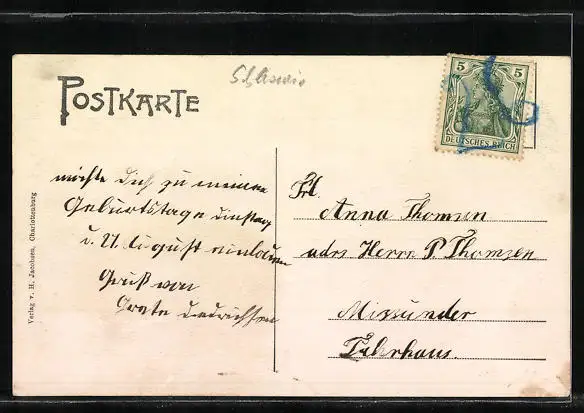 Schleswig
POSTKARTE
5 5
DEUTSCHES REICH
möchte dich zu meinem
Geburtstage
d. 21 August einladen
Gruß von
Grete Dedrichsen
Frl.
Anna Thomsen
adrs Herrn P. Thomsen
Missunder
Fährhaus.
Verlag v. H. Jacobsen, Charlottenburg